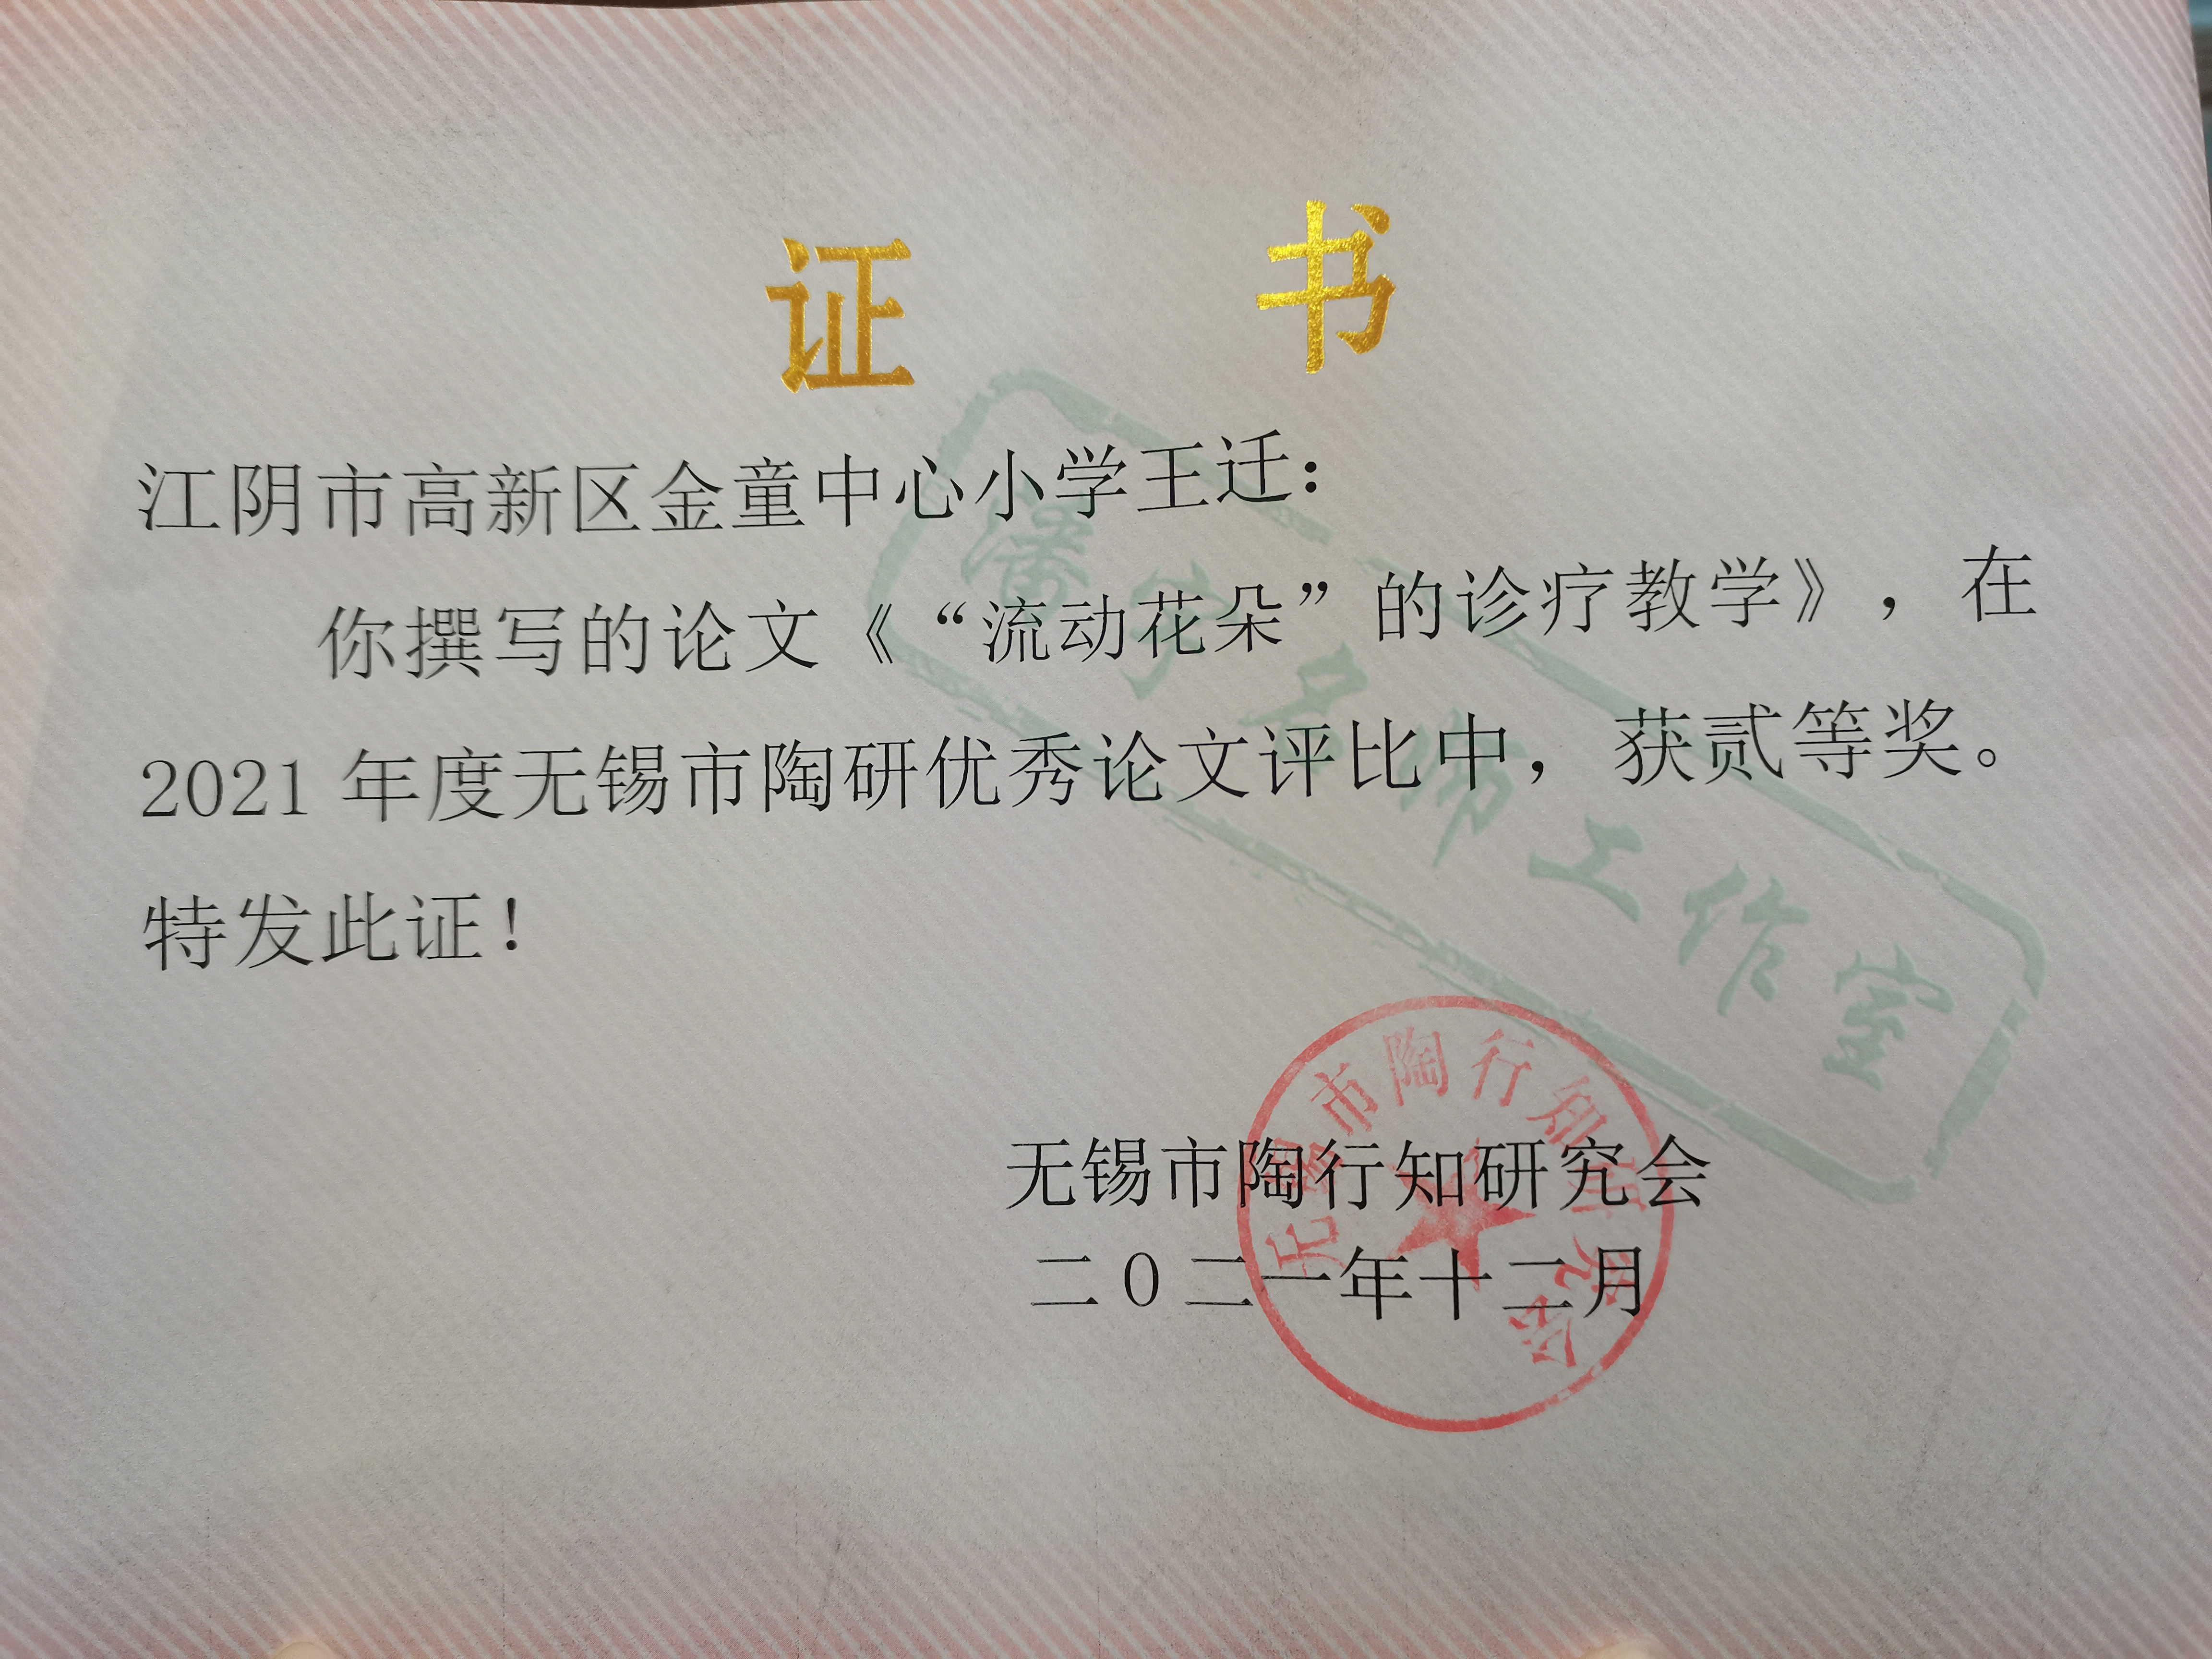 证 书
江阴市高新区金童中心小学王迁：
你撰写的论文《“流动花朵”的诊疗教学》，在
2021年度无锡市陶研优秀论文评比中，获贰等奖。
特发此证！
无锡市陶行知研究会
二0二一年十二月
无锡市陶行知研究会
潘宇名师工作室